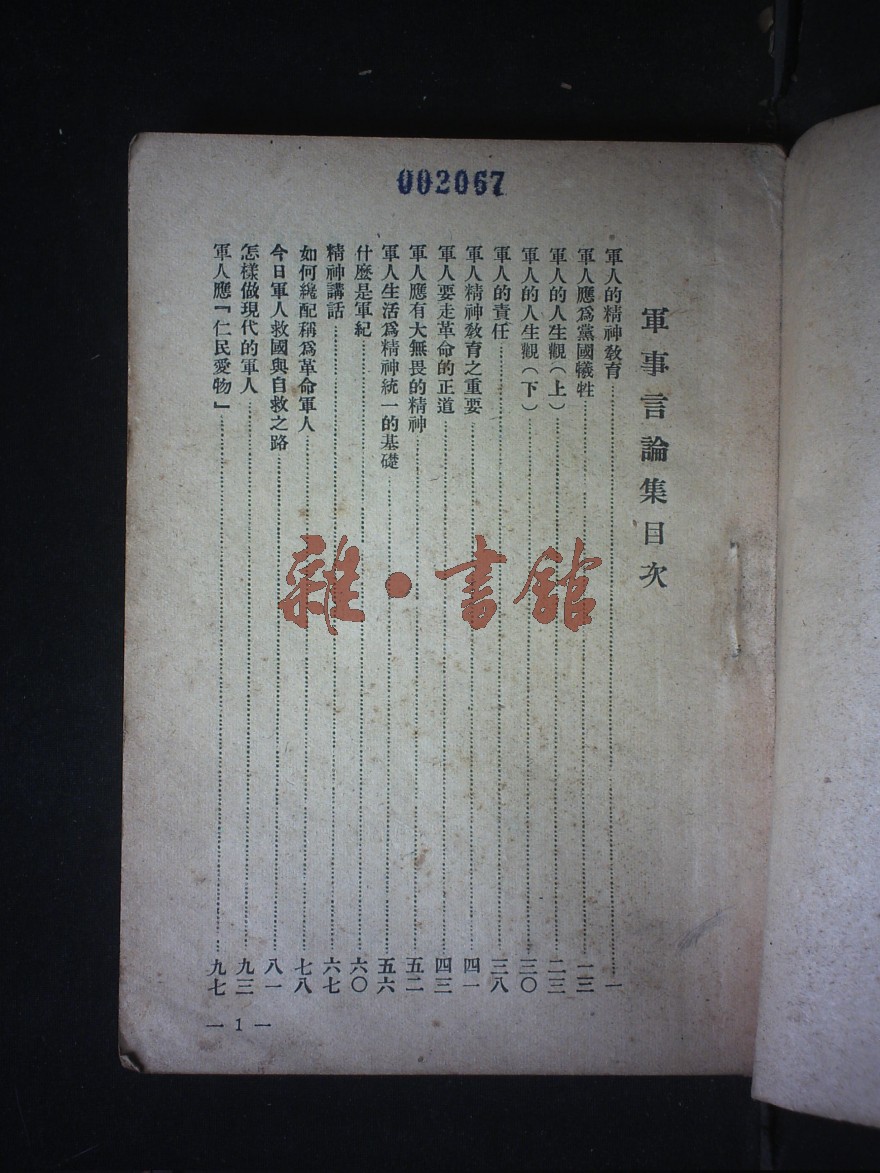 002067
軍事言論集目次
軍人的精神敎育……一
軍人應爲黨國犧牲……一三
軍人的人生觀(上)……二三
軍人的人生觀(下)……三〇
軍人的責任……三八
軍人精神敎育之重要……四一
軍人要走革命的正道……四三
軍人應有大無畏的精神……五二
軍人生活爲精神統一的基礎……五六
什麼是軍紀……六〇
精神講話……六七
如何纔配稱爲革命軍人……七八
今日軍人救國與自救之路……八一
怎樣做現代的軍人……九三
軍人應「仁民愛物」……九七
— 1 —
雜·書館